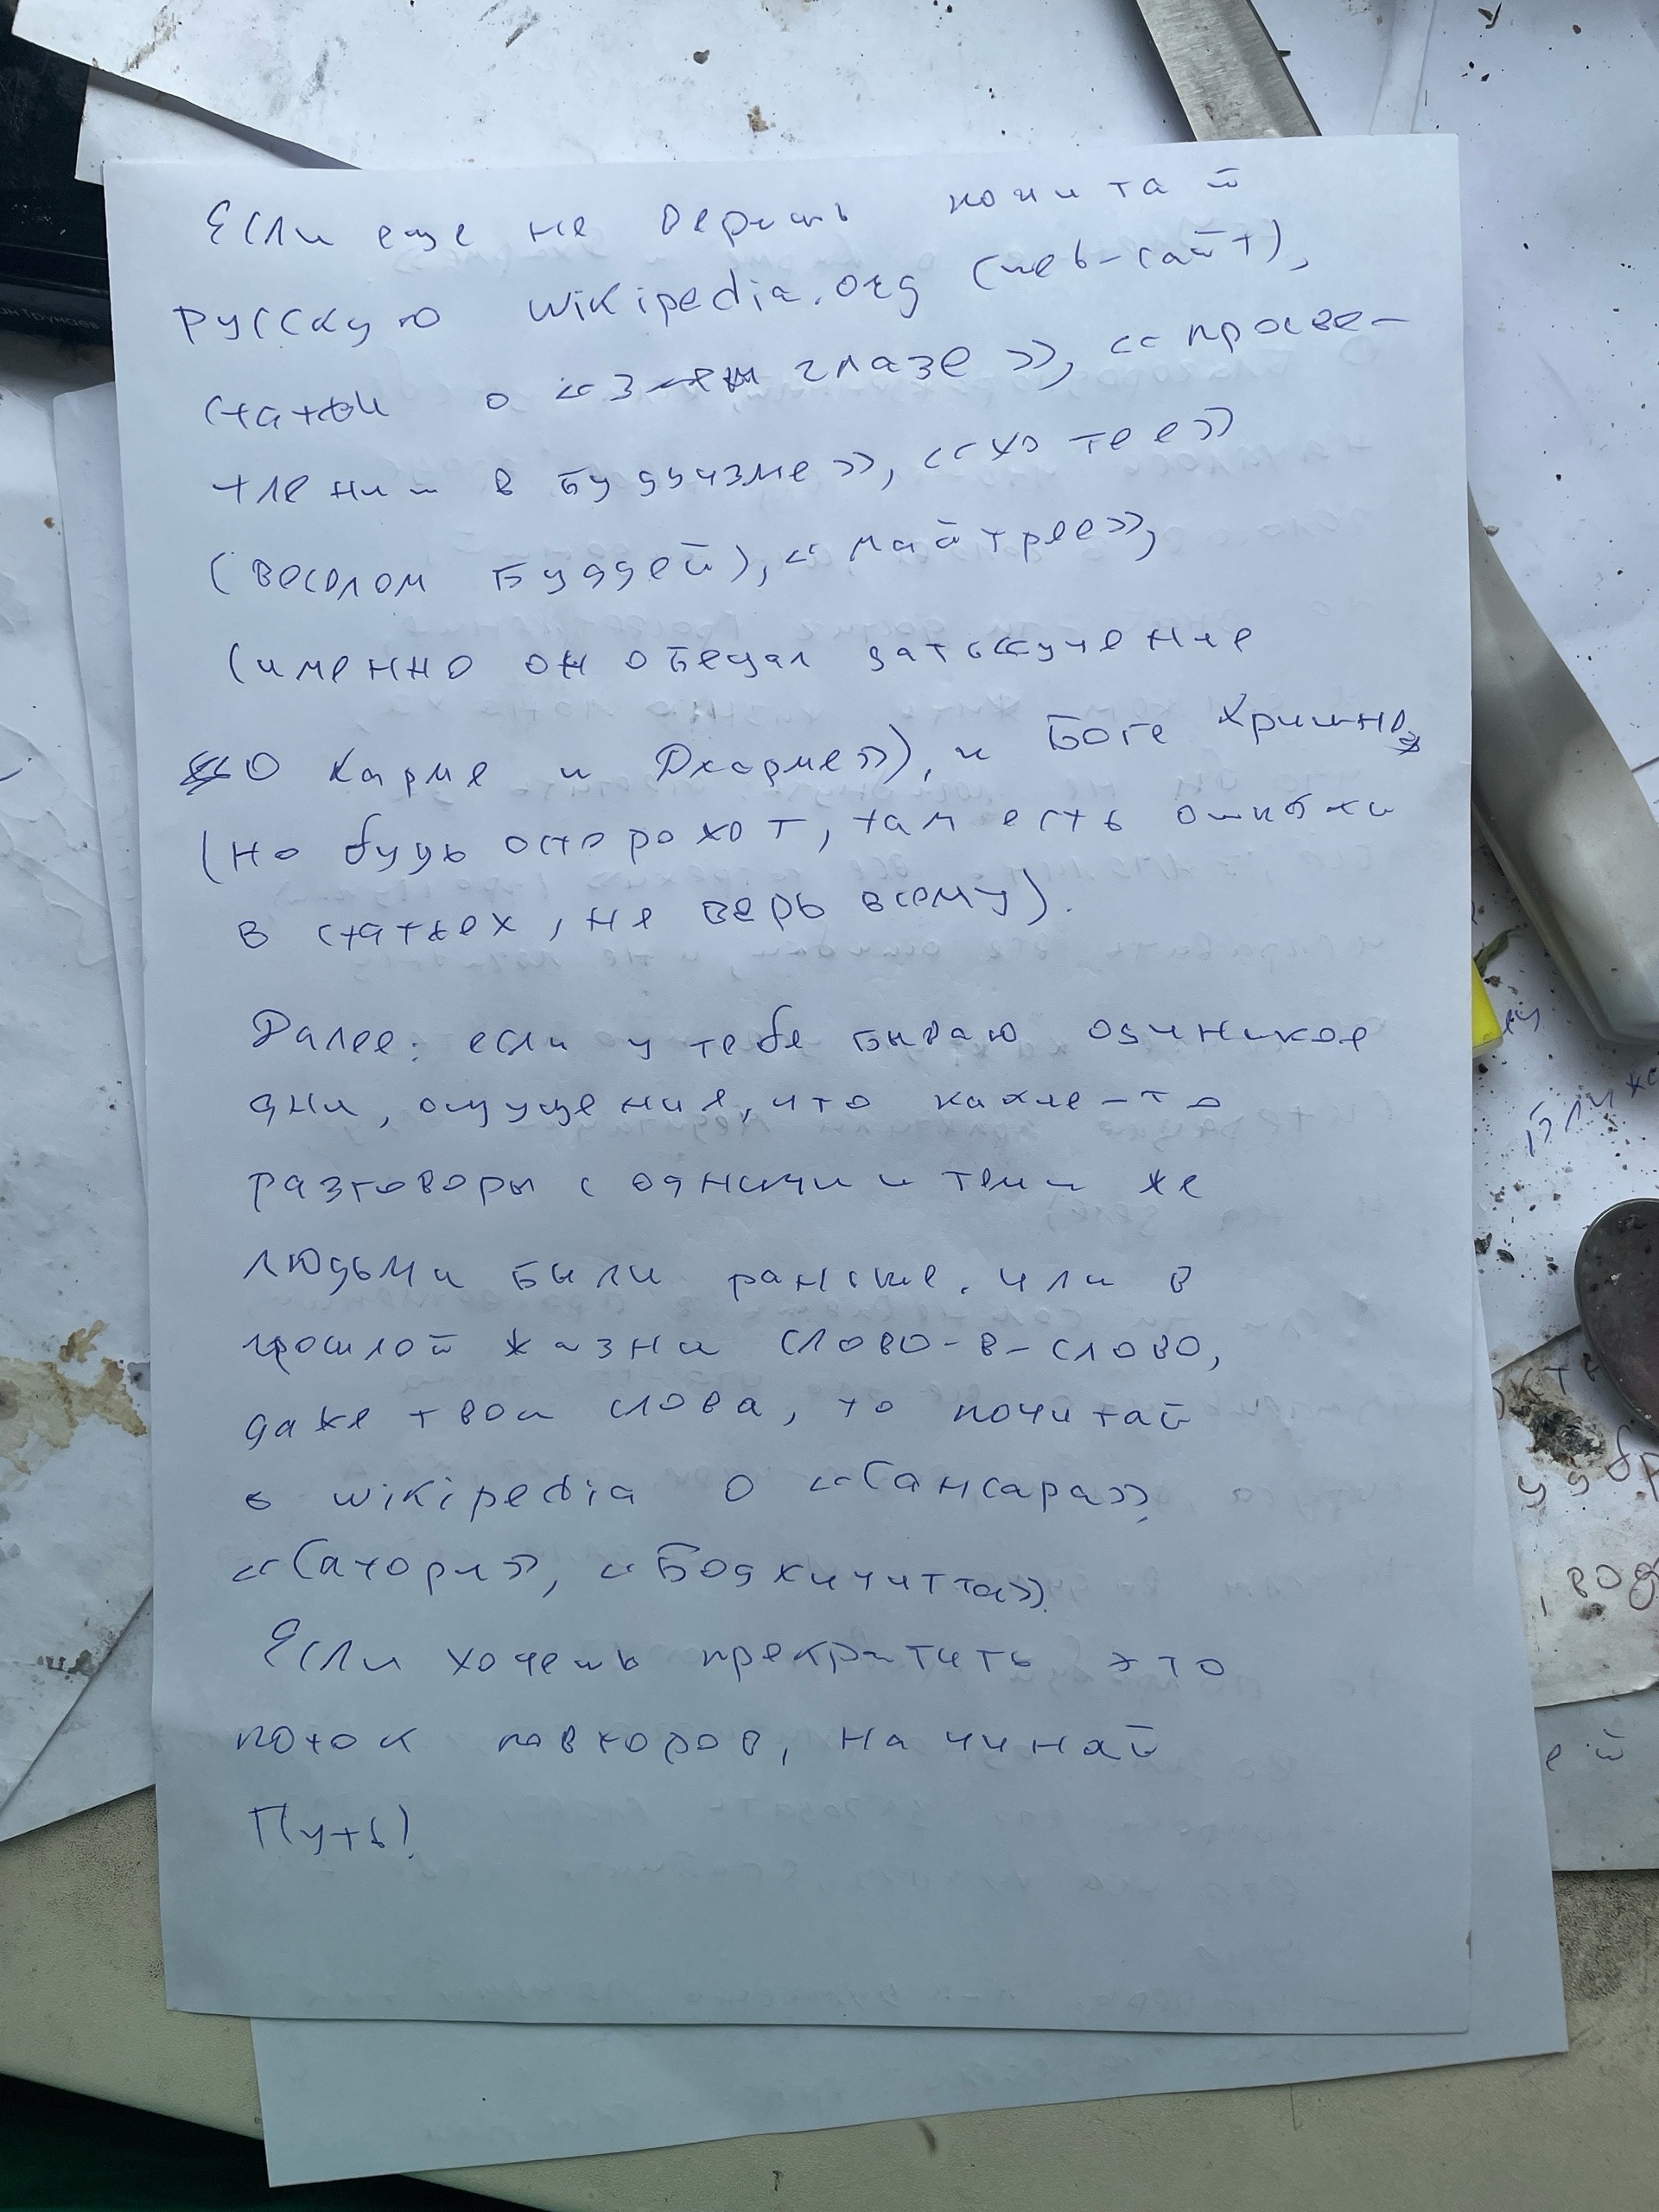 Если еще не веришь почитай
русскую wikipedia.org (web-сайт),
статьи о «3-ем глазе», «просве-
тлении в Буддизме», «Хотее»
(веселом Буддей), «Майтрее»,
(именно он обещал дать учение
О Карме и Дхарме»), и Боге Кришне,
(но будь осторохот, там есть ошибки
в статьех, не верь всему).
Далее: если у тебя бываю одинокое
дни, ощущения, что какие-то
разговоры с одними и теми же
людьми были раньше, или в
прошлой жизни слово-в-слово,
даже твои слова, то почитай
в wikipedia о «Сансара»,
«Сатори», «Бодхичитта».
Если хочешь прекратить это
поток повторов, начинай
Путь!